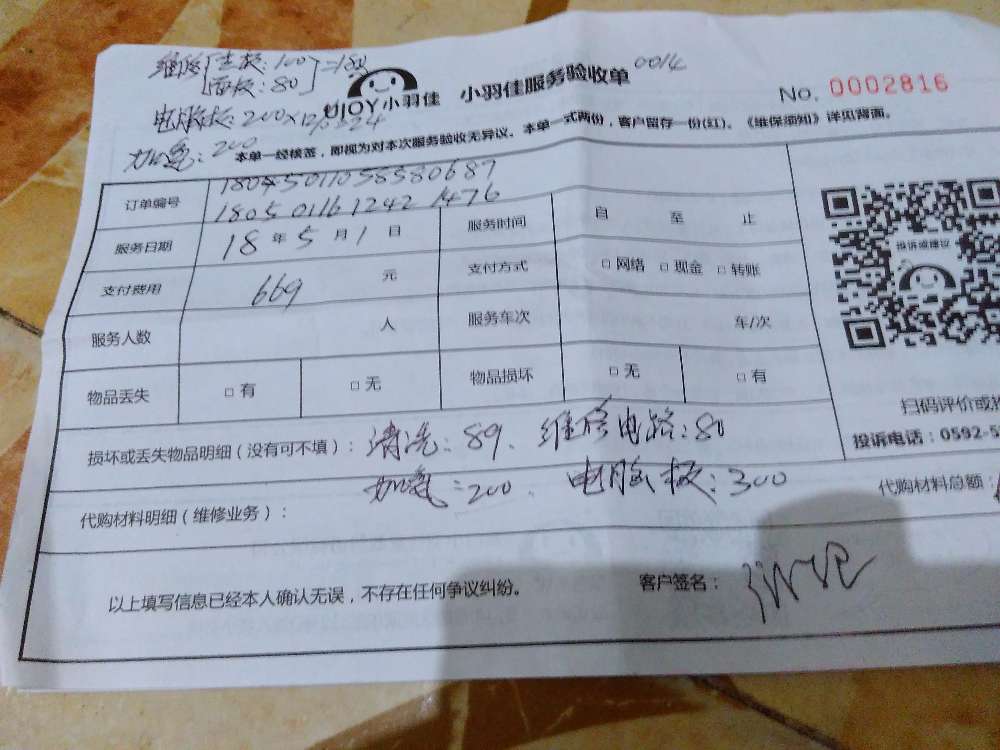 维修 主板:100 =180
面板:80
电脑板:200×12%=224
加氨:200
UJOY小羽佳 小羽佳服务验收单 0014
No. 0002816
本单一经核签,即视为对本次服务验收无异议。本单一式两份,客户留存一份(红)。《维保须知》详见背面。
订单编号
180501161242 1476
服务日期 18 年 5 月 1 日 服务时间 自 至 止
支付费用 669 元 支付方式 □ 网络 □ 现金 □ 转账
服务人数 人 服务车次 车/次
物品丢失 □ 有 □ 无 物品损坏 □ 无 □ 有
投诉或建议
扫码评价或投
投诉电话:0592-5
损坏或丢失物品明细(没有可不填): 清洗:89、维修电路:80
加氨:200、电脑板:300
代购材料明细(维修业务): 代购材料总额:
以上填写信息已经本人确认无误,不存在任何争议纠纷。 客户签名: